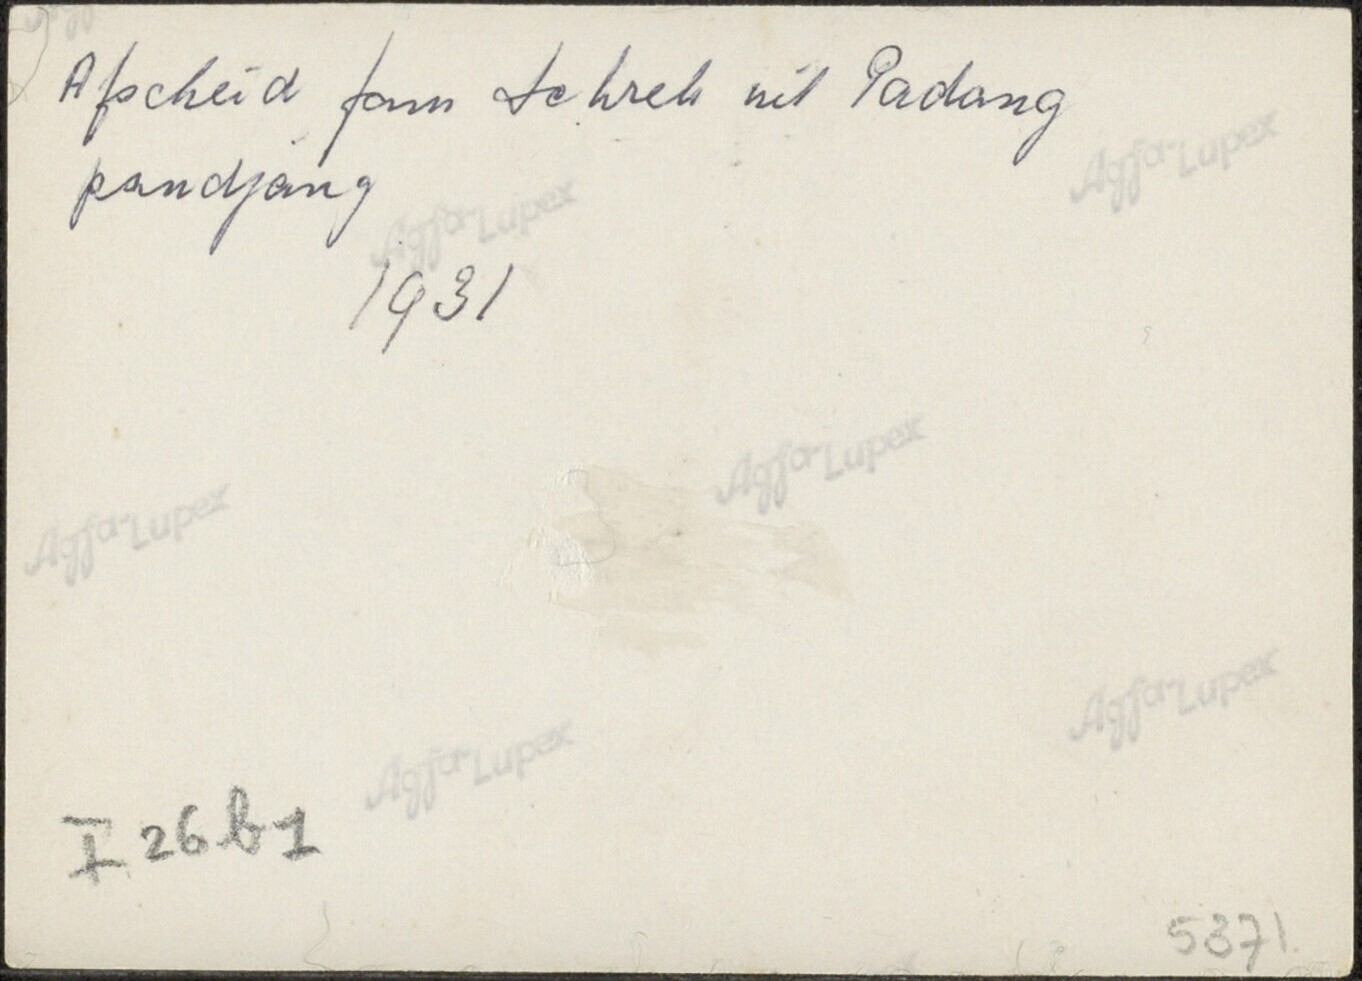 Afscheid fam Schreh uit Padang
pandjang
1931
Agfa-Lupex
Agfa-Lupex
Agfa-Lupex
Agfa-Lupex
Agfa-Lupex
Agfa-Lupex
I 26 b 1
5371